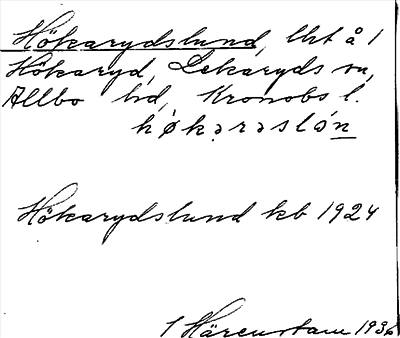 Hökarydslund, lht å 1
Hökaryd, Lekaryds sn,
Allbo hd, Kronobs l.
høkarəslón
Hökarydslund kb 1924
1 Härenstam 1936